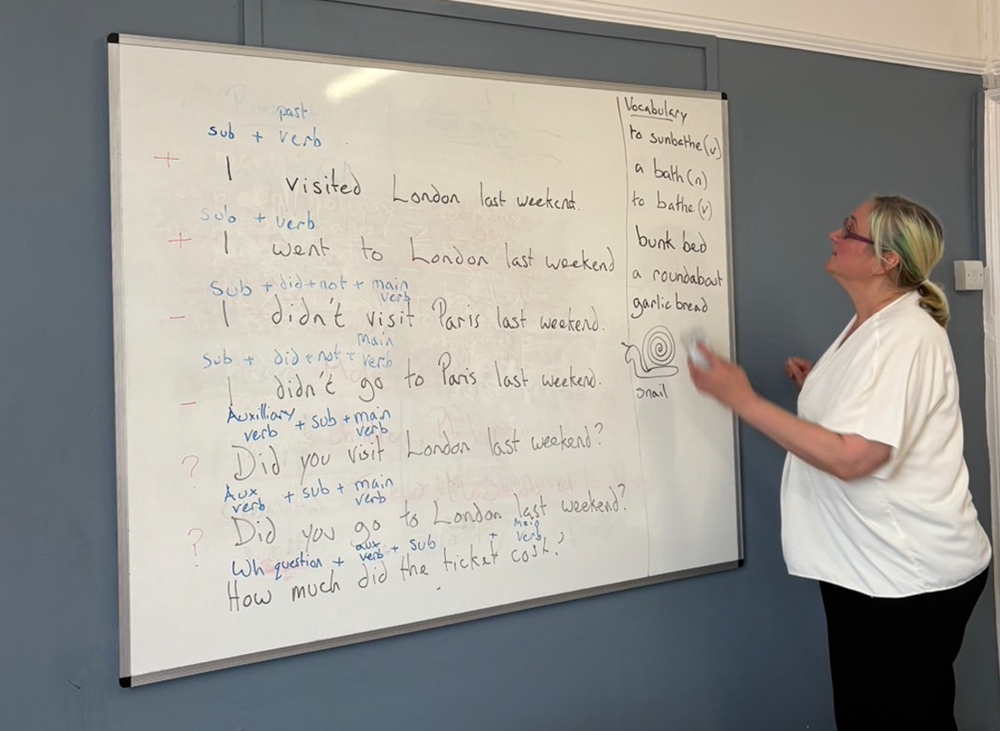 past
sub + verb
+ I visited London last weekend.
sub + verb
+ I went to London last weekend
Sub + did + not + main verb
- I didn't visit Paris last weekend.
Sub + did + not + main verb
- I didn't go to Paris last weekend.
Auxilliary verb + sub + main verb
? Did you visit London last weekend?
Aux verb + sub + main verb
? Did you go to London last weekend?
Wh question + aux verb + sub + main verb
How much did the ticket cost?
Vocabulary
to sunbathe (v)
a bath (n)
to bathe (v)
bunk bed
a roundabout
garlic bread
snail